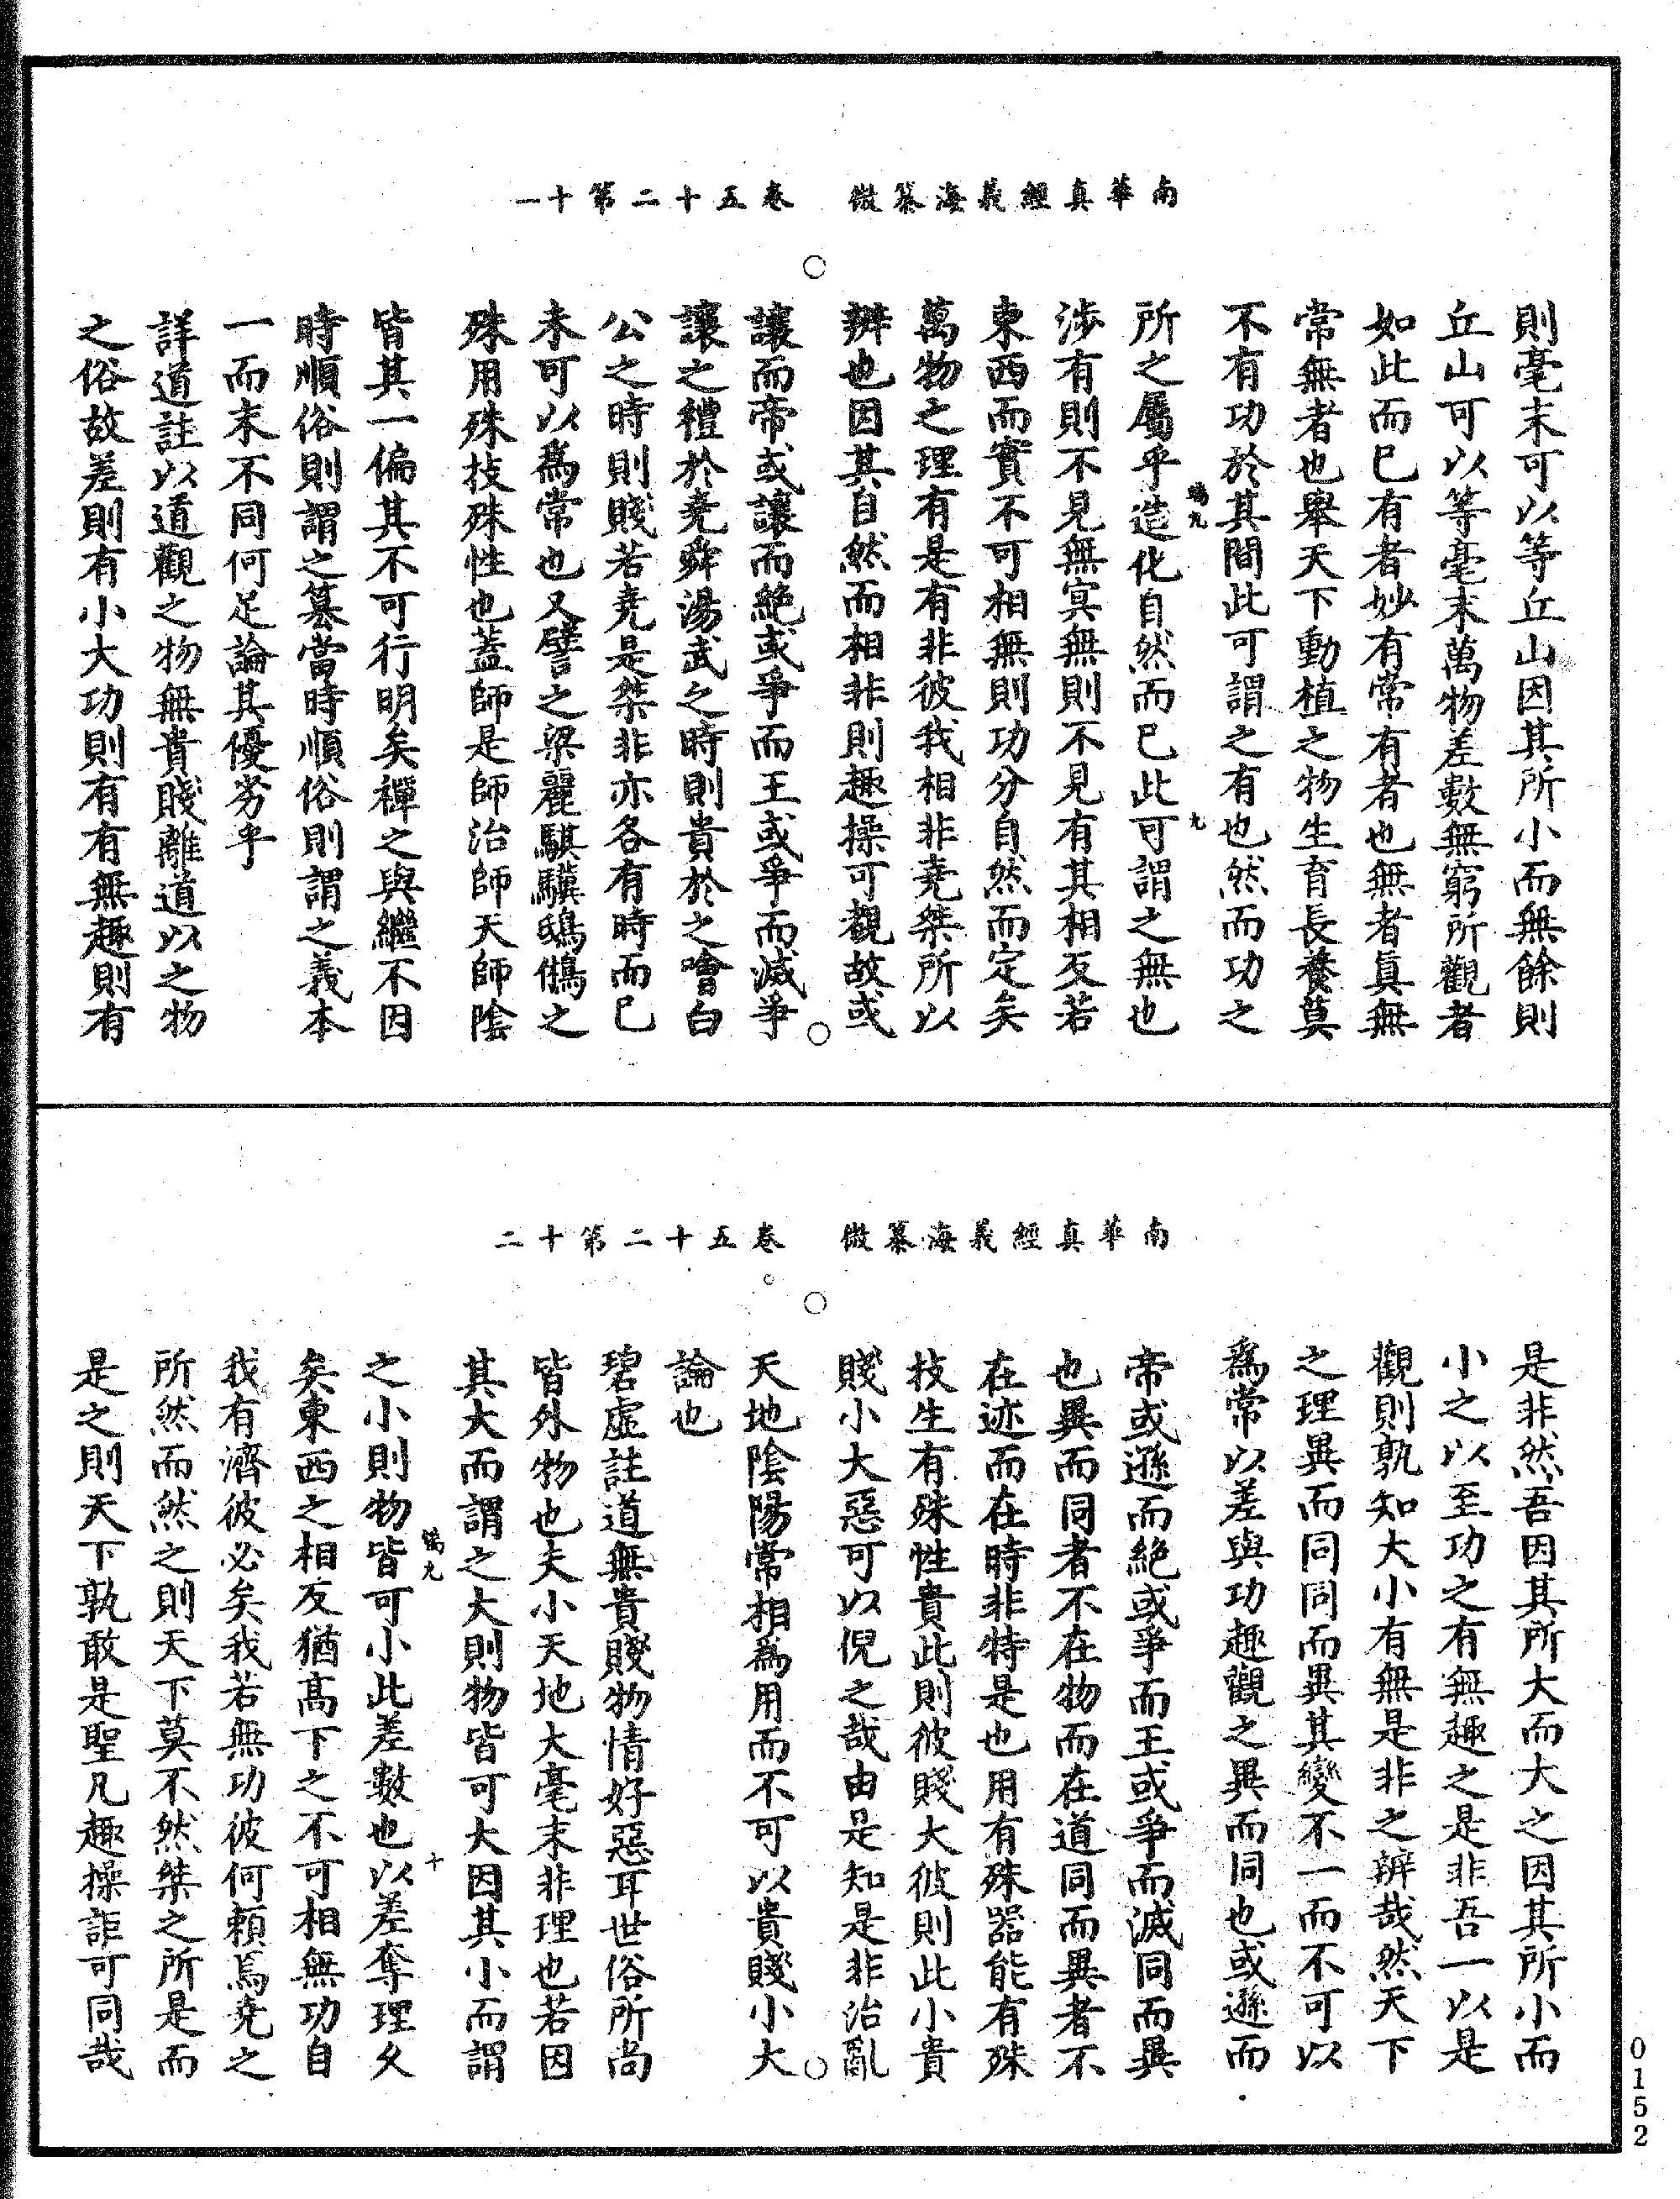 南華真經義海纂微　卷五十二第十一
則毫末可以等丘山因其所小而無餘則
丘山可以等毫末萬物差數無窮所觀者
如此而已有者妙有常有者也無者真無
常無者也舉天下動植之物生育長養莫
不有功於其間此可謂之有也然而功之
所之屬乎造化自然而已此可謂之無也
涉有則不見無㝠無則不見有其相反若
東西而實不可相無則功分自然而定矣
萬物之理有是有非彼我相非堯桀所以
辨也因其自然而相非則趣操可觀故或
讓而帝或讓而絕或爭而王或爭而滅爭
讓之禮於堯舜湯武之時則貴於之噲白
公之時則賤若堯是桀非亦各有時而已
未可以為常也又譬之梁麗騏驥鴟鵂之
殊用殊技殊性也蓋師是師治師天師陰
皆其一偏其不可行明矣禪之與繼不因
時順俗則謂之篡當時順俗則謂之義本
一而末不同何足論其優劣乎
詳道註以道觀之物無貴賤離道以之物
之俗故差則有小大功則有有無趣則有
端九
九
南華真經義海纂微　卷五十二第十二
是非然吾因其所大而大之因其所小而
小之以至功之有無趣之是非吾一以是
觀則孰知大小有無是非之辨哉然天下
之理異而同同而異其變不一而不可以
為常以差與功趣觀之異而同也或遜而
帝或遜而絕或爭而王或爭而滅同而異
也異而同者不在物而在道同而異者不
在迹而在時非特是也用有殊器能有殊
技生有殊性貴此則彼賤大彼則此小貴
賤小大惡可以倪之哉由是知是非治亂
天地陰陽常相為用而不可以貴賤小大
論也
碧虛註道無貴賤物情好惡耳世俗所尚
皆外物也夫小天地大毫末非理也若因
其大而謂之大則物皆可大因其小而謂
之小則物皆可小此差數也以差奪理久
矣東西之相反猶高下之不可相無功自
我有濟彼必矣我若無功彼何賴焉堯之
所然而然之則天下莫不然桀之所是而
是之則天下孰敢是聖凡趣操詎可同哉
端九
十
0152